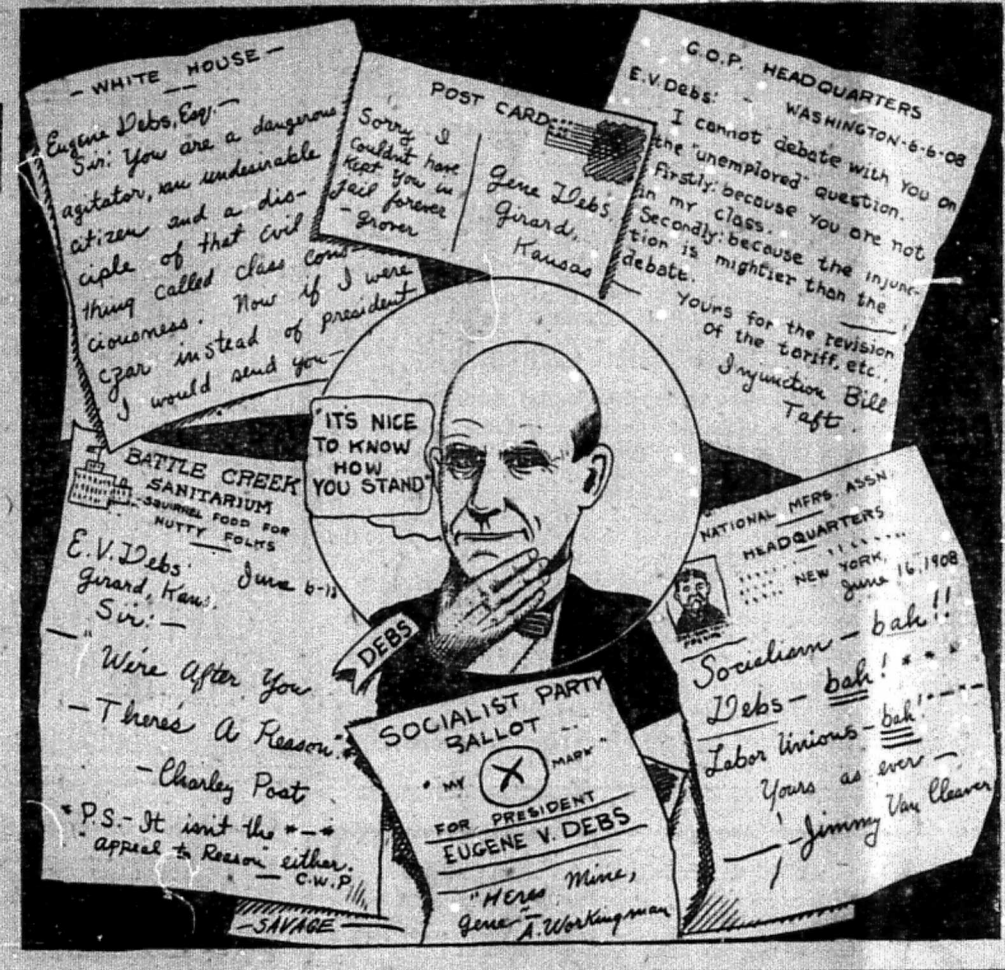 - WHITE HOUSE -
Eugene Debs, Esq. -
Sir: You are a dangerous
agitator, an undesirable
citizen and a dis-
ciple of that evil
thing called class cons-
ciousness. Now if I were
czar instead of president
I would send you -
POST CARD
Sorry I
Couldn't have
Kept you in
Jail forever
- Grover
Gene Debs
Girard,
Kansas
G.O.P. HEADQUARTERS
WASHINGTON-6-6-08
E.V. Debs:
I cannot debate with you on
the "unemployed" question.
Firstly: because you are not
in my class.
Secondly: because the injunc-
tion is mightier than the
debate.
Yours for the revision
of the tariff, etc.,
Injunction Bill
Taft.
"IT'S NICE
TO KNOW
HOW
YOU STAND"
BATTLE CREEK
SANITARIUM
-SQUIRREL FOOD FOR
NUTTY FOLKS
June 6-
E.V. Debs
Girard, Kans.
Sir: -
"We're After You
- There's A Reason"
- Charley Post
* P.S. - It isn't the * - *
appeal to Reason either.
- C.W.P.
DEBS
NATIONAL MFRS. ASSN.
HEADQUARTERS
NEW YORK,
June 16, 1908
Socialism - bah!!
Debs - bah! * * *
Labor Unions - bah! - * - * -
Yours as ever -
- Jimmy Van Cleaver
SOCIALIST PARTY
BALLOT
"MY X MARK"
FOR PRESIDENT
EUGENE V. DEBS
"Heres Mine,
Gene" A. Workingman
-SAVAGE-